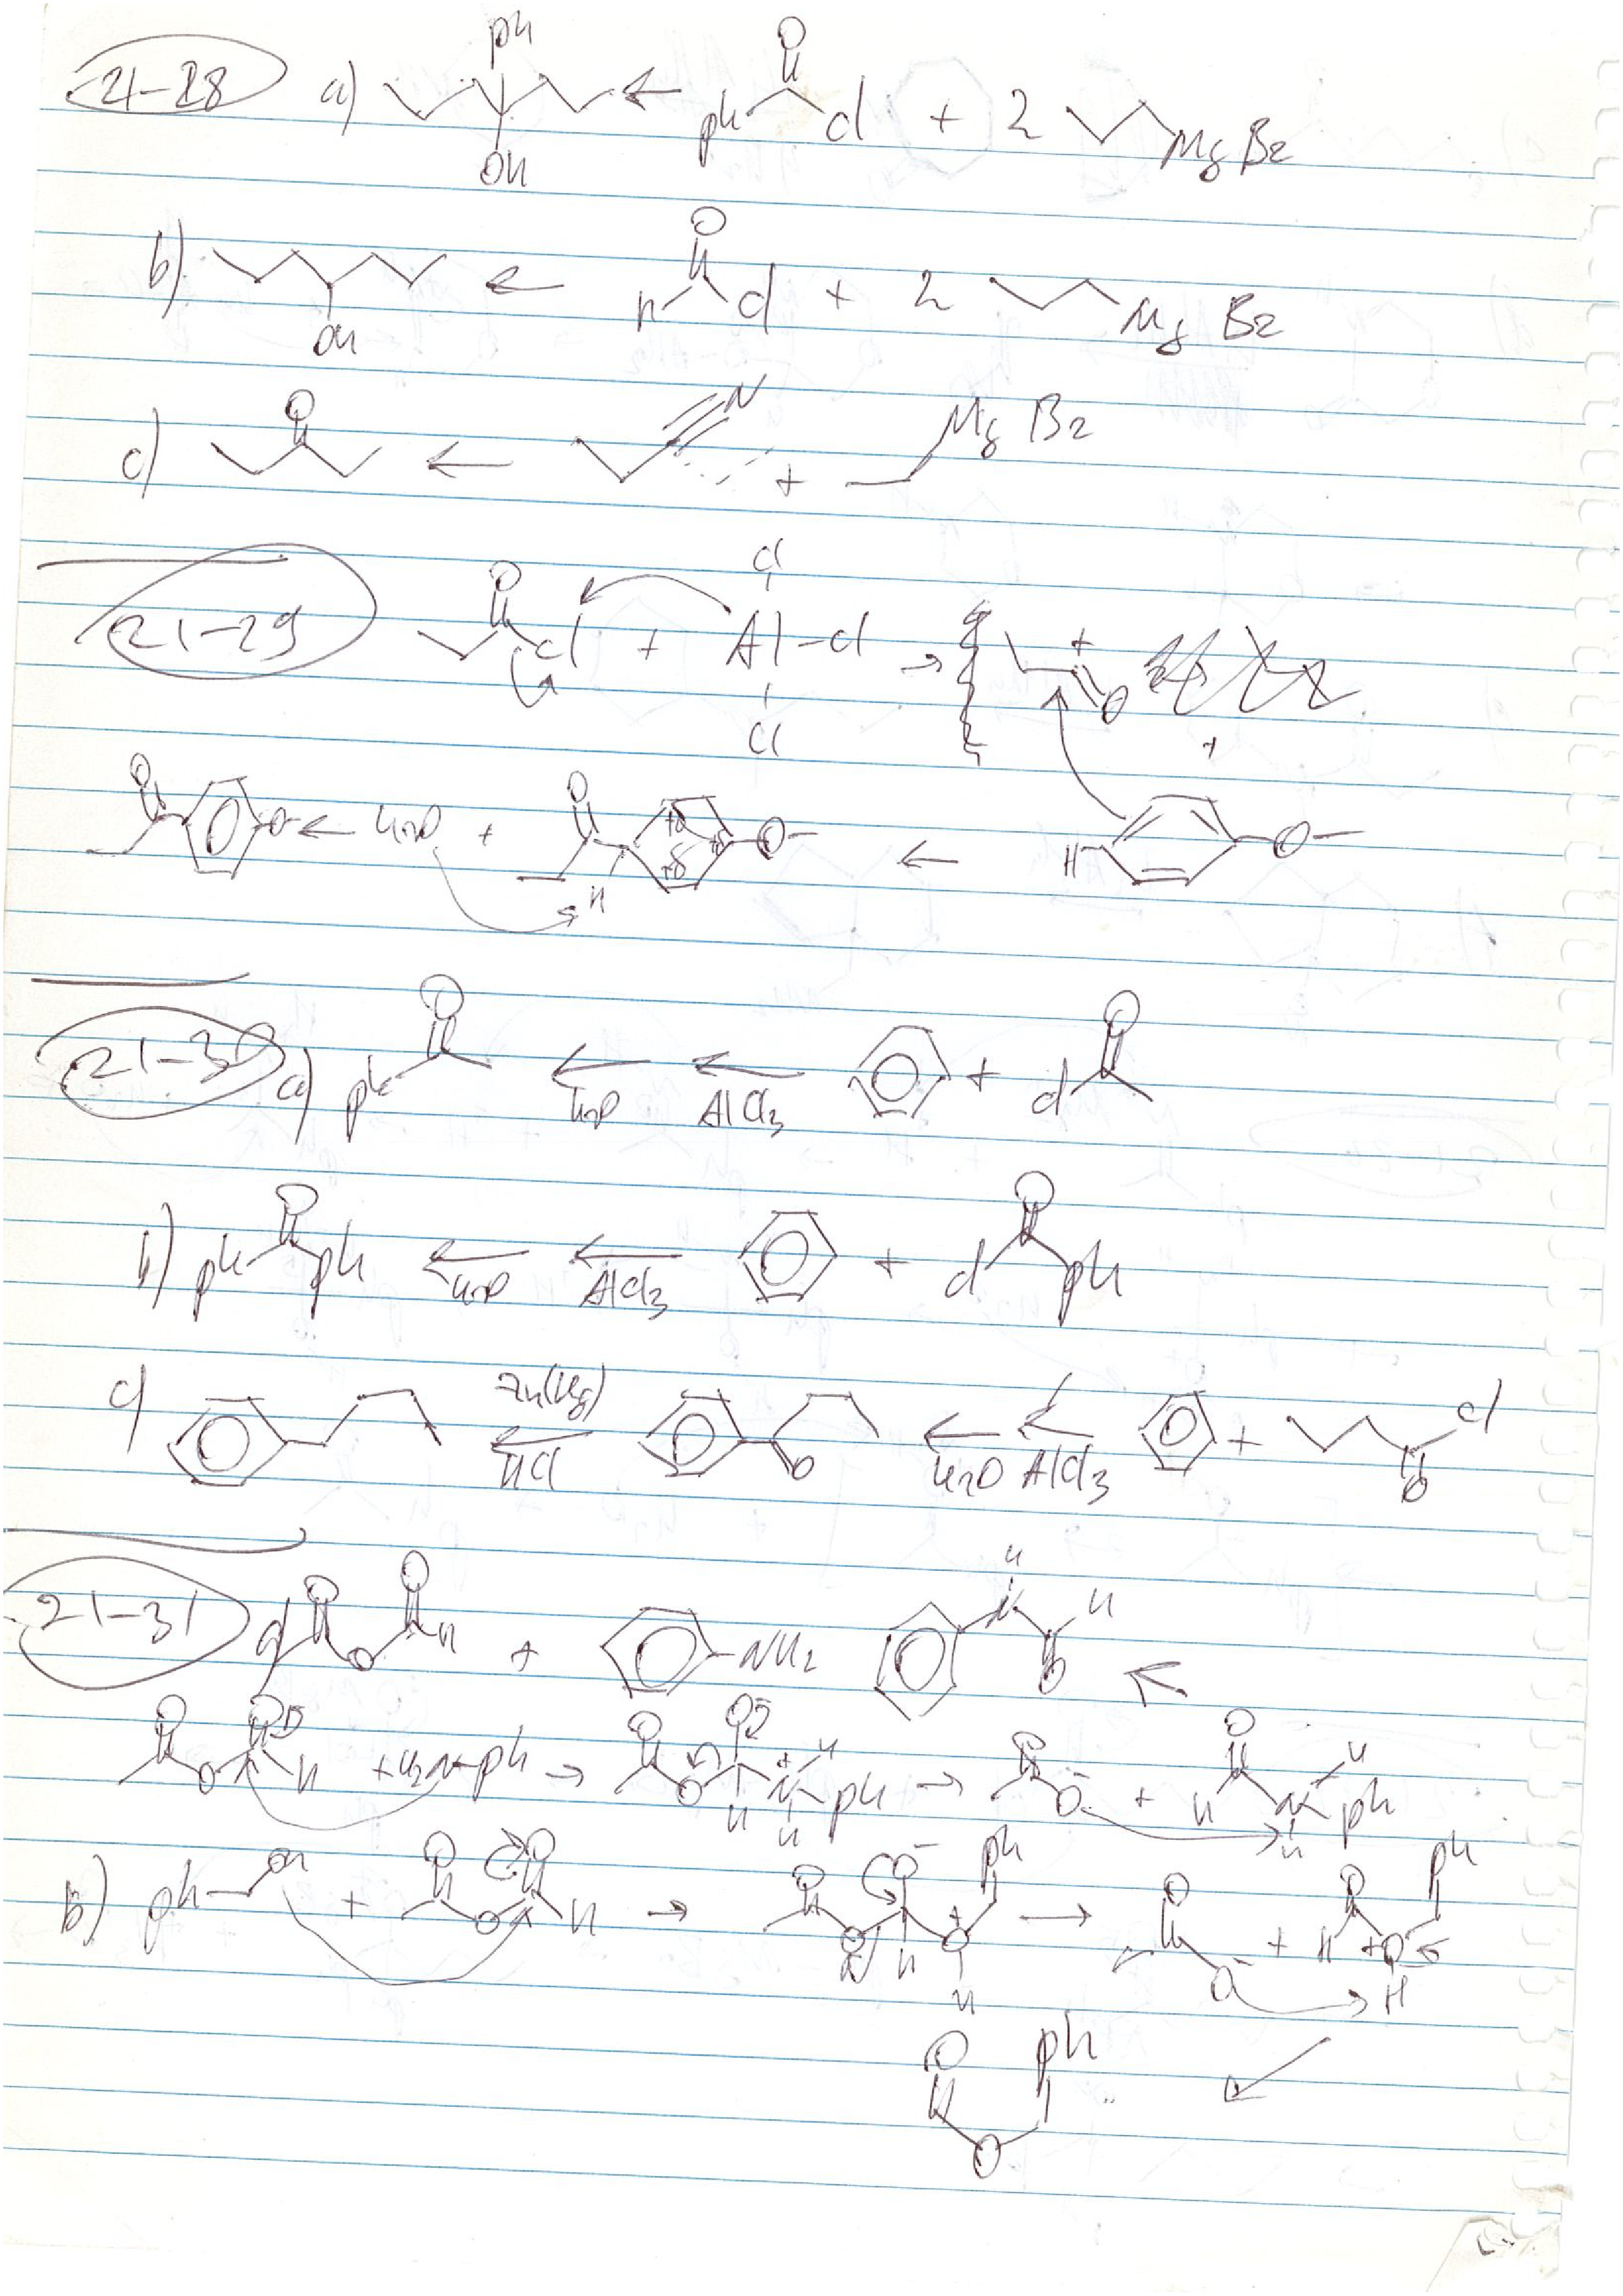 21-28 a) Ph OH ← O Ph Cl + 2 MgBr
b) OH ← O H Cl + 2 MgBr
c) O ← N + MgBr
21-29 O Cl + Al Cl Cl Cl → + O
+
O O ← H2O + O H +δ +δ +δ O ← H O
21-30 a) Ph O ← H2O ← AlCl3 + Cl O
b) Ph O Ph ← H2O ← AlCl3 + Cl O Ph
c) ← Zn(Hg) HCl O ← H2O ← AlCl3 + O Cl
21-31 a) O O O H + NH2 H N H O ←
O O O H + H2N-Ph → O O O⁻ H N + H H Ph → O O⁻ + O H N H H Ph
b) Ph OH + O O O H → O O O⁻ H O + H Ph → O O⁻ + O H O + H Ph
O O Ph ←